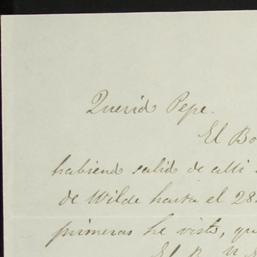 Querid Pepe.
El Bo
habiend salid de alli
de Wilde hasta el 28
primeras he visto, qu
El